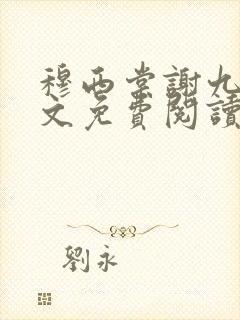 穆西棠謝九
文免費閱讀
劉永